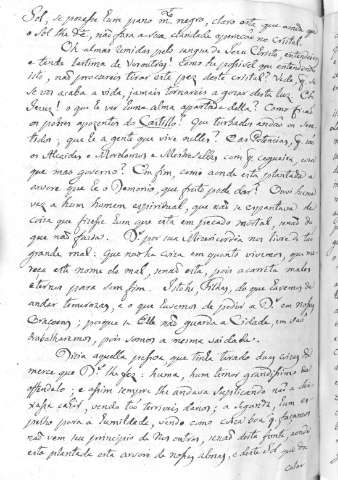 Sol, se pozesse hum pano mt. negro, claro está que ainda que
o Sol lhe dê, não fara a sua claridade operação no cristal.
Oh almas remidas pelo sangue de Jesu Christo, entendeivos
e tende lastima de vos outras! Como he possivel que entendendo
isto, não procureis tirar este pez deste cristal? Vede que
se vos acaba a vida, jamais tornareis a gozar desta luz. Oh
Jezus! o que he ver huma alma apartada della? Como ficão
os pobres apozentos do Castillo! Que turbados andão os Sen-
tidos, que he a gente que vive nelles? E as Potencias, que são
os Alcaides e Mordomos e Mestresallas com que cegueira, com
que mao governo? Em fim, como aonde está plantada a
arvore que he o Demonio, que fruto pode dar? Ouvi huma
vez a hum homem espiritual, que não se espantava de
coiza que fizesse hum que está em peccado mortal, senão do
que não fazia. Ds. por sua Misericordia nos livre de tão
grande mal: Que não ha coiza em quanto vivemos, que me-
reça este nome de mal, senão esta, pois acarreta males
eternos para sem fim. Isto he Filhas, do que havemos de
andar temerozas, e o que havemos de pedir a Ds. em nossas
Oraçoens; porque se Elle não guarda a Cidade, em vão
trabalharemos, pois somos a mesma vaidade.
Dizia aquella pessoa, que tinha tirado duas coizas da
merce que Ds. lhe fez: huma, hum temor grandissimo de
offendelo; e assim sempre lhe andava Suplicando não a dei-
xasse cahir, vendo tão terriveis danos; a segunda, hum es-
pelho para a humildade, vendo como coiza boa que façamos
não vem seu principio de nós outras, senão desta fonte, aonde
está plantada esta arvore de nossas almas, e deste Sol que dá
calor